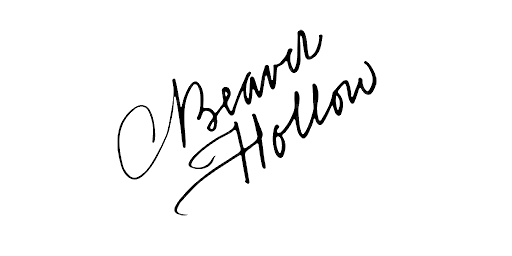 Beaver
Hollow